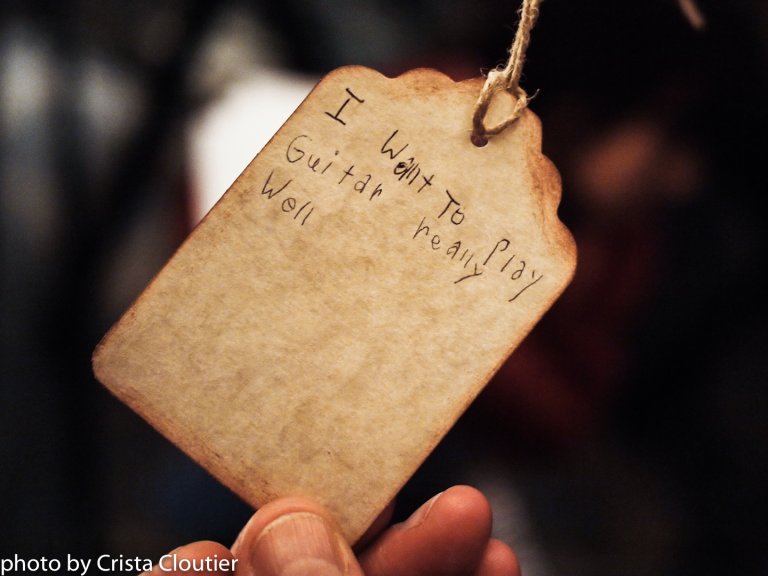 I Want To Play
Guitar really
Well
photo by Crista Cloutier